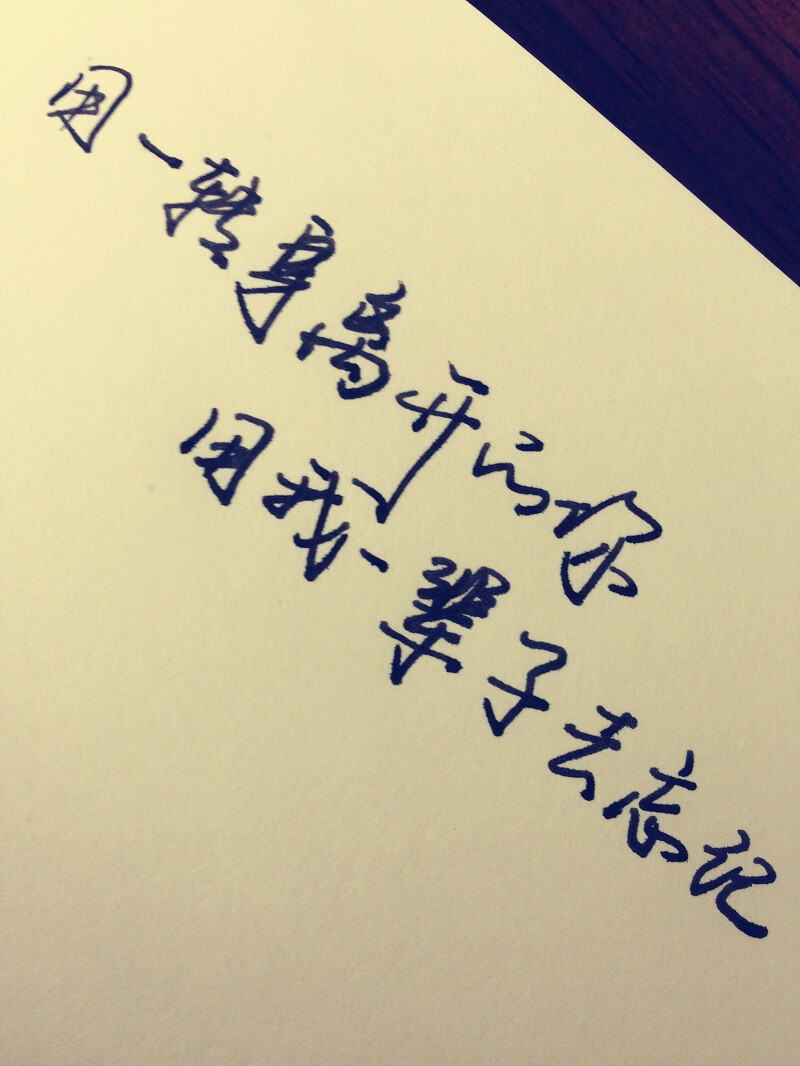 用一转身离开的你
用我一辈子去忘记